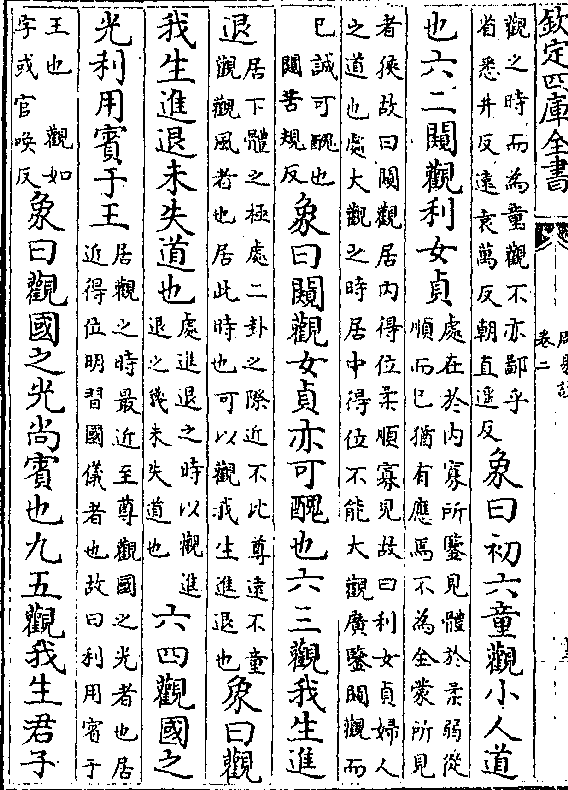 欽定四庫全書
卷二
觀之時而為童觀不亦鄙乎
省悉井反遠袁萬反朝直遥反
象曰初六童觀小人道
也六二闚觀利女貞
處在於内寡所鑒見體於柔弱從
順而已猶有應焉不為全蒙所見
者狹故曰闚觀居内得位柔順寡見故曰利女貞婦人
之道也處大觀之時居中得位不能大觀廣鑒闚觀而
已誠可醜也
闚苦規反
象曰闚觀女貞亦可醜也六三觀我生進
退
居下體之極處二卦之際近不比尊遠不童
觀觀風者也居此時也可以觀我生進退也
象曰觀
我生進退未失道也
處進退之時以觀進
退之幾未失道也
六四觀國之
光利用賓于王
居觀之時最近至尊觀國之光者也居
近得位明習國儀者也故曰利用賓于
王也 觀如
字或官喚反
象曰觀國之光尚賓也九五觀我生君子